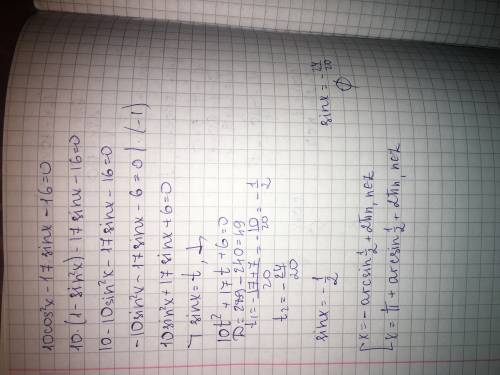 10cos²x - 17sinx - 16 = 0
10·(1 - sin²x) - 17sinx - 16 = 0
10 - 10sin²x - 17sinx - 16 = 0
-10sin²x - 17sinx - 6 = 0 | (-1)
10sin²x + 17sinx + 6 = 0
sinx = t,
10t² + 17t + 6 = 0
D = 289 - 240 = 49
t₁ = (-17+7)/20 = -10/20 = -1/2
t₂ = -24/20
sinx = -1/2 sinx = -24/20
∅
[x = -arcsin 1/2 + 2πn, n∈z
[x = π + arcsin 1/2 + 2πn, n∈z